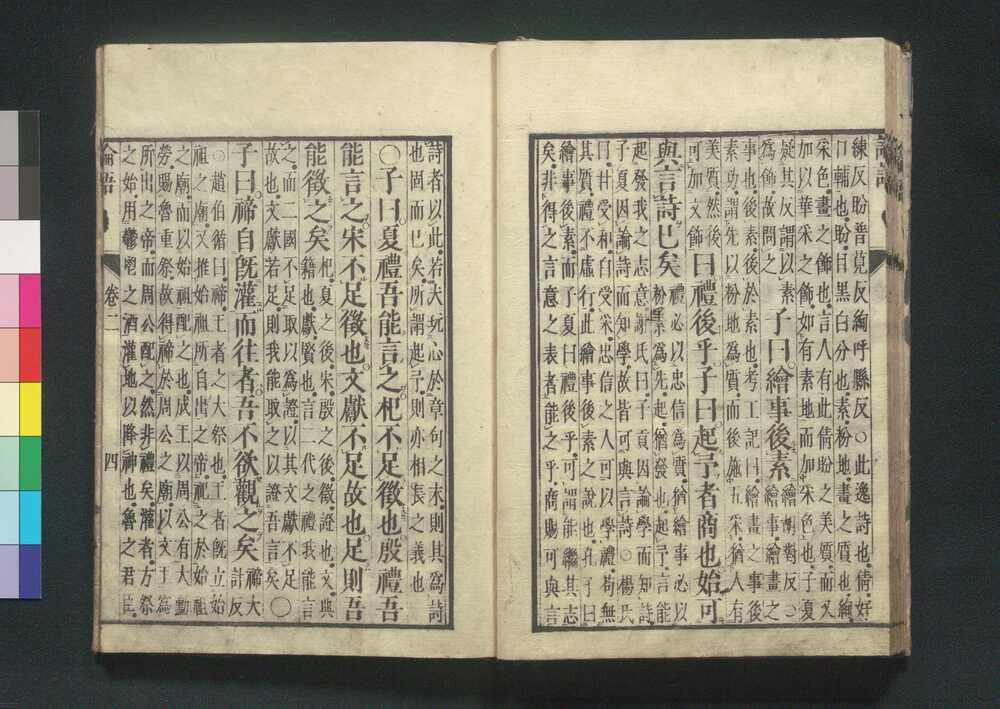 練反盼普莧反絢呼縣反○此逸詩也倩好
口輔也盼目黑白分也素粉地畫之質也絢
采色畫之飾也言人有此倩盼之美質而又
加以華采之飾如有素地而加采色也子夏
疑其反謂以素
為飾故問之
子曰繪事後素
繪胡對反○
繪事繪畫之
事也後素後於素也考工記曰繪畫之事後
素功謂先以粉地為質而後施五采猶人有
美質然後
可加文飾
曰禮後乎子曰起予者商也始可
與言詩已矣
禮必以忠信為質猶繪事必以
粉素為先起猶發也起予言能
起發我之志意謝氏曰子貢因論學而知詩
子夏因論詩而知學故皆可與言詩○楊氏
曰甘受和白受采忠信之人可以學禮苟無
其質禮不虛行此繪事後素之說也孔子曰
繪事後素而子夏曰禮後乎可謂能繼其志
矣非得之言意之表者能之乎商賜可與言
詩者以此若夫玩心於章句之末則其為詩
也固而已矣所謂起予則亦相長之義也
○子曰夏禮吾能言之杞不足徵也殷禮吾
能言之宋不足徵也文獻不足故也足則吾
能徵之矣
杞夏之後宋殷之後徵證也文典
籍也獻賢也言二代之禮我能言
之而二國不足取以為證以其文獻不足
故也文獻若足則我能取之以證吾言矣
○
子曰禘自既灌而往者吾不欲觀之矣
禘大
計反
○趙伯循曰禘王者之大祭也王者既立始
祖之廟又推始祖所自出之帝祀之於始祖
之廟而以始祖配之也成王以周公有大勳
勞賜魯重祭故得禘於周公之廟以文王為
所出之帝而周公配之然非禮矣灌者方祭
之始用鬱鬯之酒灌地以降神也魯之君臣
論語 卷二 四